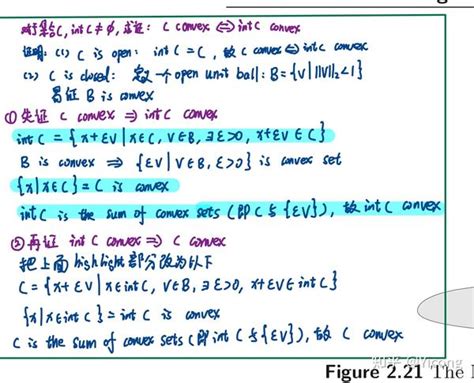 对集合C, int C ≠ ∅, 求证: C convex ⇔ int C convex
证明: (1) C is open: int C = C, 故 C convex ⇔ int C convex
(2) C is closed: 定义一个 open unit ball: B = {v | ‖v‖₂ < 1}
易证 B is convex
① 先证 C convex ⇒ int C convex
int C = {x + εv | x∈C, v∈B, ∃ε>0, x+εv∈C}
B is convex ⇒ {εv | v∈B, ε>0} is convex set
{x | x∈C} = C is convex
int C is the sum of convex sets (即 C 与 {εv}), 故 int C convex
② 再证 int C convex ⇒ C convex
把上面 highlight 部分改为以下
C = {x + εv | x∈int C, v∈B, ∃ε>0, x+εv∈int C}
{x | x∈int C} = int C is convex
C is the sum of convex sets (即 int C 与 {εv}), 故 C convex
知乎 @Yicong
Figure 2.21 The